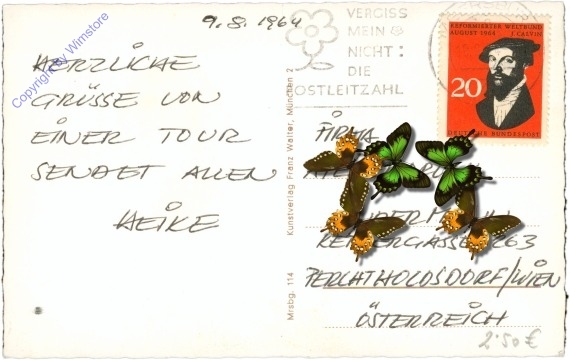 9.8.1964
HERZLICHE
GRÜSSE VON
EINER TOUR
SENDET ALLEN
HEIKE
Copyright by Wimstore
Mrsbg. 114 Kunstverlag Franz Walter, München 2
VERGISS
MEIN
NICHT:
DIE
POSTLEITZAHL
REFORMIERTER WELTBUND
AUGUST 1964 J. CALVIN
20
DEUTSCHE BUNDESPOST
FIRMA
263
PERCHTHOLDSDORF/WIEN
ÖSTERREICH
2.50 €